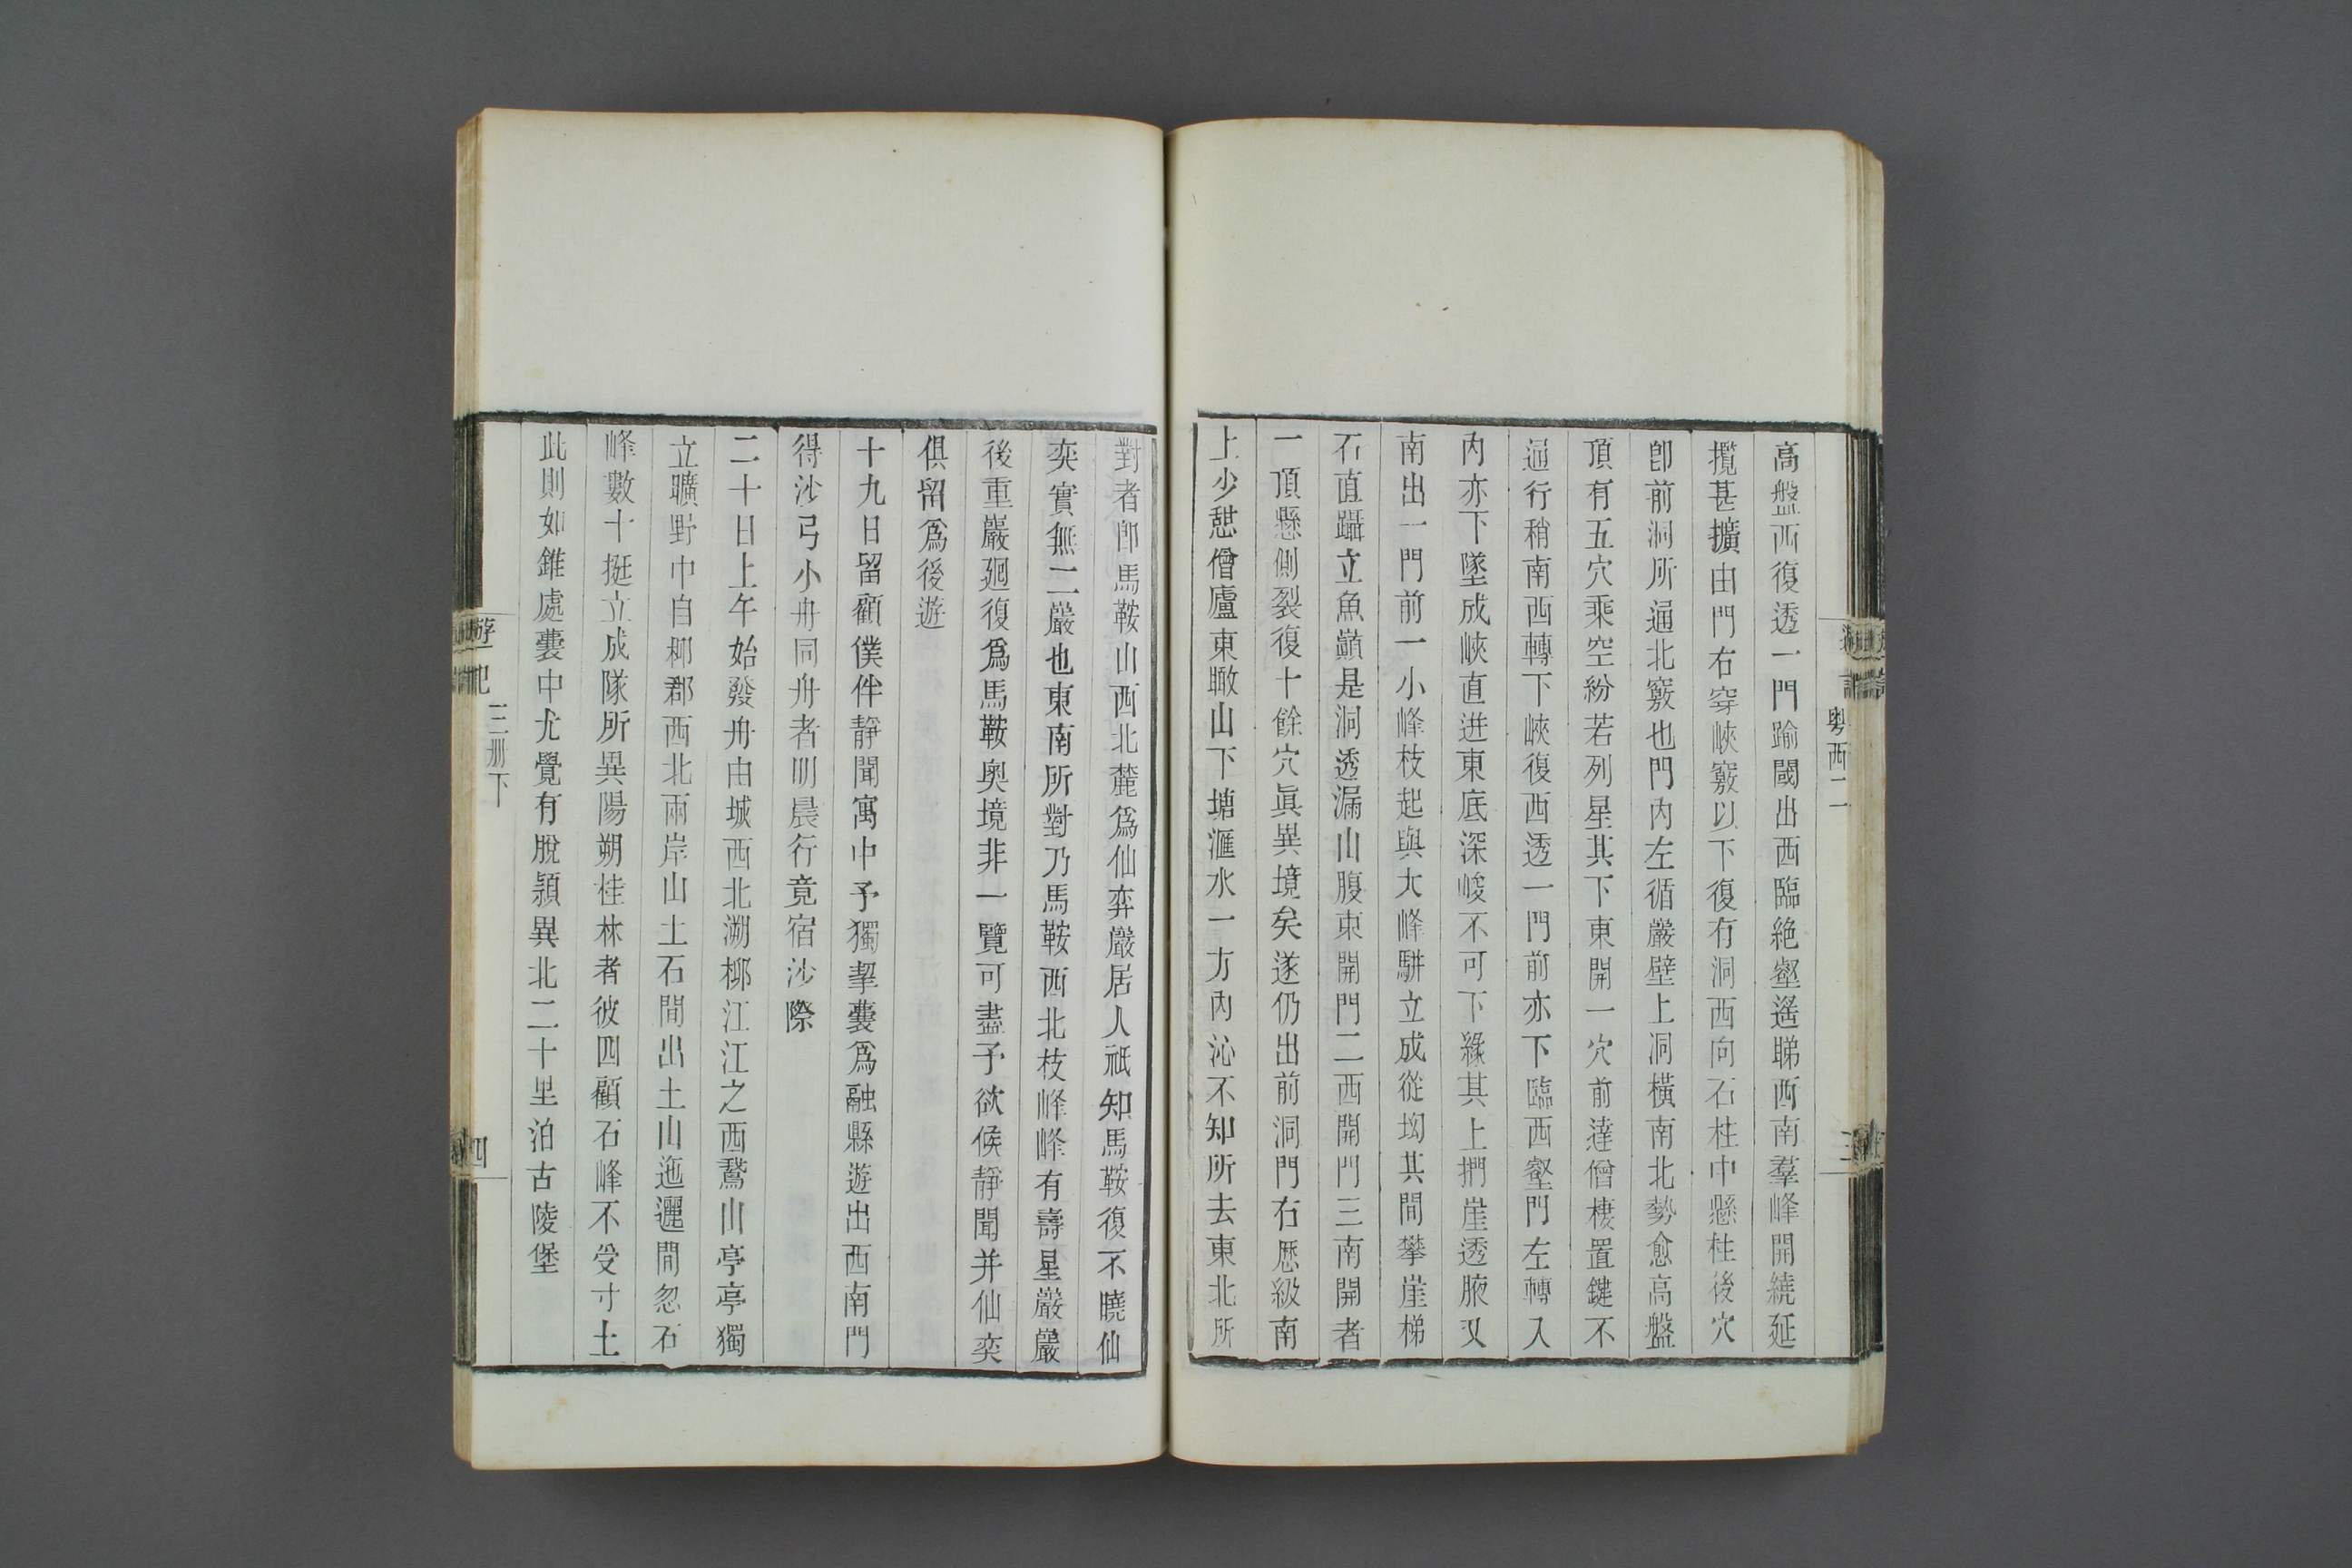 粵西二
高盤西復透一門踰閾出西臨絶壑遙睇西南羣峰開繞延
攬甚擴由門右穿峽竅以下復有洞西向石柱中懸柱後穴
卽前洞所通北竅也門內左循巖壁上洞橫南北勢愈高盤
頂有五穴乘空紛若列星其下東開一穴前達僧棲置鍵不
通行稍南西轉下峽復西透一門前亦下臨西壑門左轉入
內亦下墜成峽直迸東底深峻不可下緣其上捫崖透腋又
南出一門前一小峰枝起與大峰駢立成從坳其間攀崖梯
石直躡立魚巔是洞透漏山腹東開門二西開門三南開者
一頂懸側裂復十餘穴眞異境矣遂仍出前洞門右歷級南
上少憩僧廬東瞰山下塘滙水一方內沁不知所去東北所
對者卽馬鞍山西北麓爲仙弈巖居人祇知馬鞍復不曉仙
奕實無二巖也東南所對乃馬鞍西北枝峰峰有壽星巖巖
後重巖廻復爲馬鞍奧境非一覽可盡予欲候靜聞并仙奕
俱留爲後遊
十九日留顧僕伴靜聞寓中予獨挈囊爲融縣遊出西南門
得沙弓小舟同舟者明晨行竟宿沙際
二十日上午始發舟由城西北溯柳江江之西鵞山亭亭獨
立曠野中自柳郡西北兩岸山土石間出土山迤邐間忽石
峰數十挺立成隊所異陽朔桂林者彼四顧石峰不受寸土
此則如錐處囊中尤覺有脫潁異北二十里泊古陵堡
遊記
三册下
四